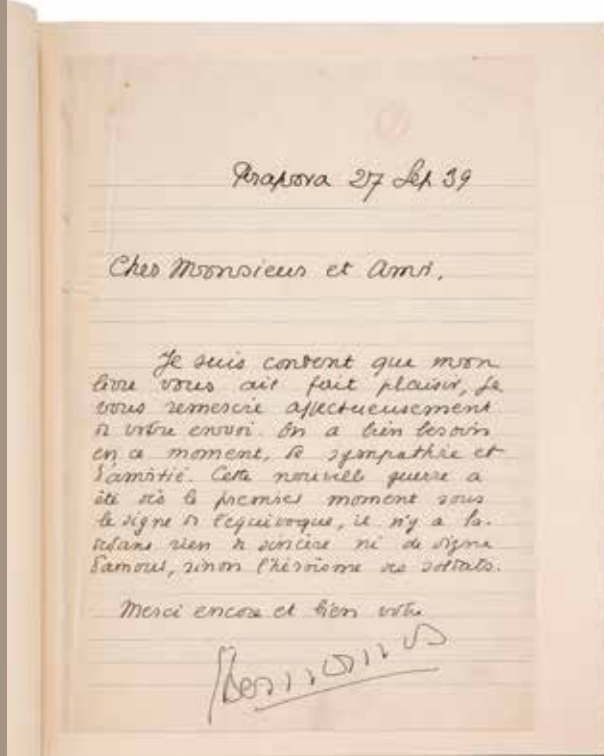 Pirapora 27 Sep 39
Cher Monsieur et Ami,
Je suis content que mon
livre vous ait fait plaisir, Je
vous remercie affectueusement
de votre envoi. On a bien besoin
en ce moment, de sympathie et
d'amitié. Cette nouvelle guerre a
été dès le premier moment sous
le signe de l'équivoque, il n'y a la-
dedans rien de sincère ni de digne
d'amour, sinon l'héroïsme des soldats.
Merci encore et bien votre
Bernanos